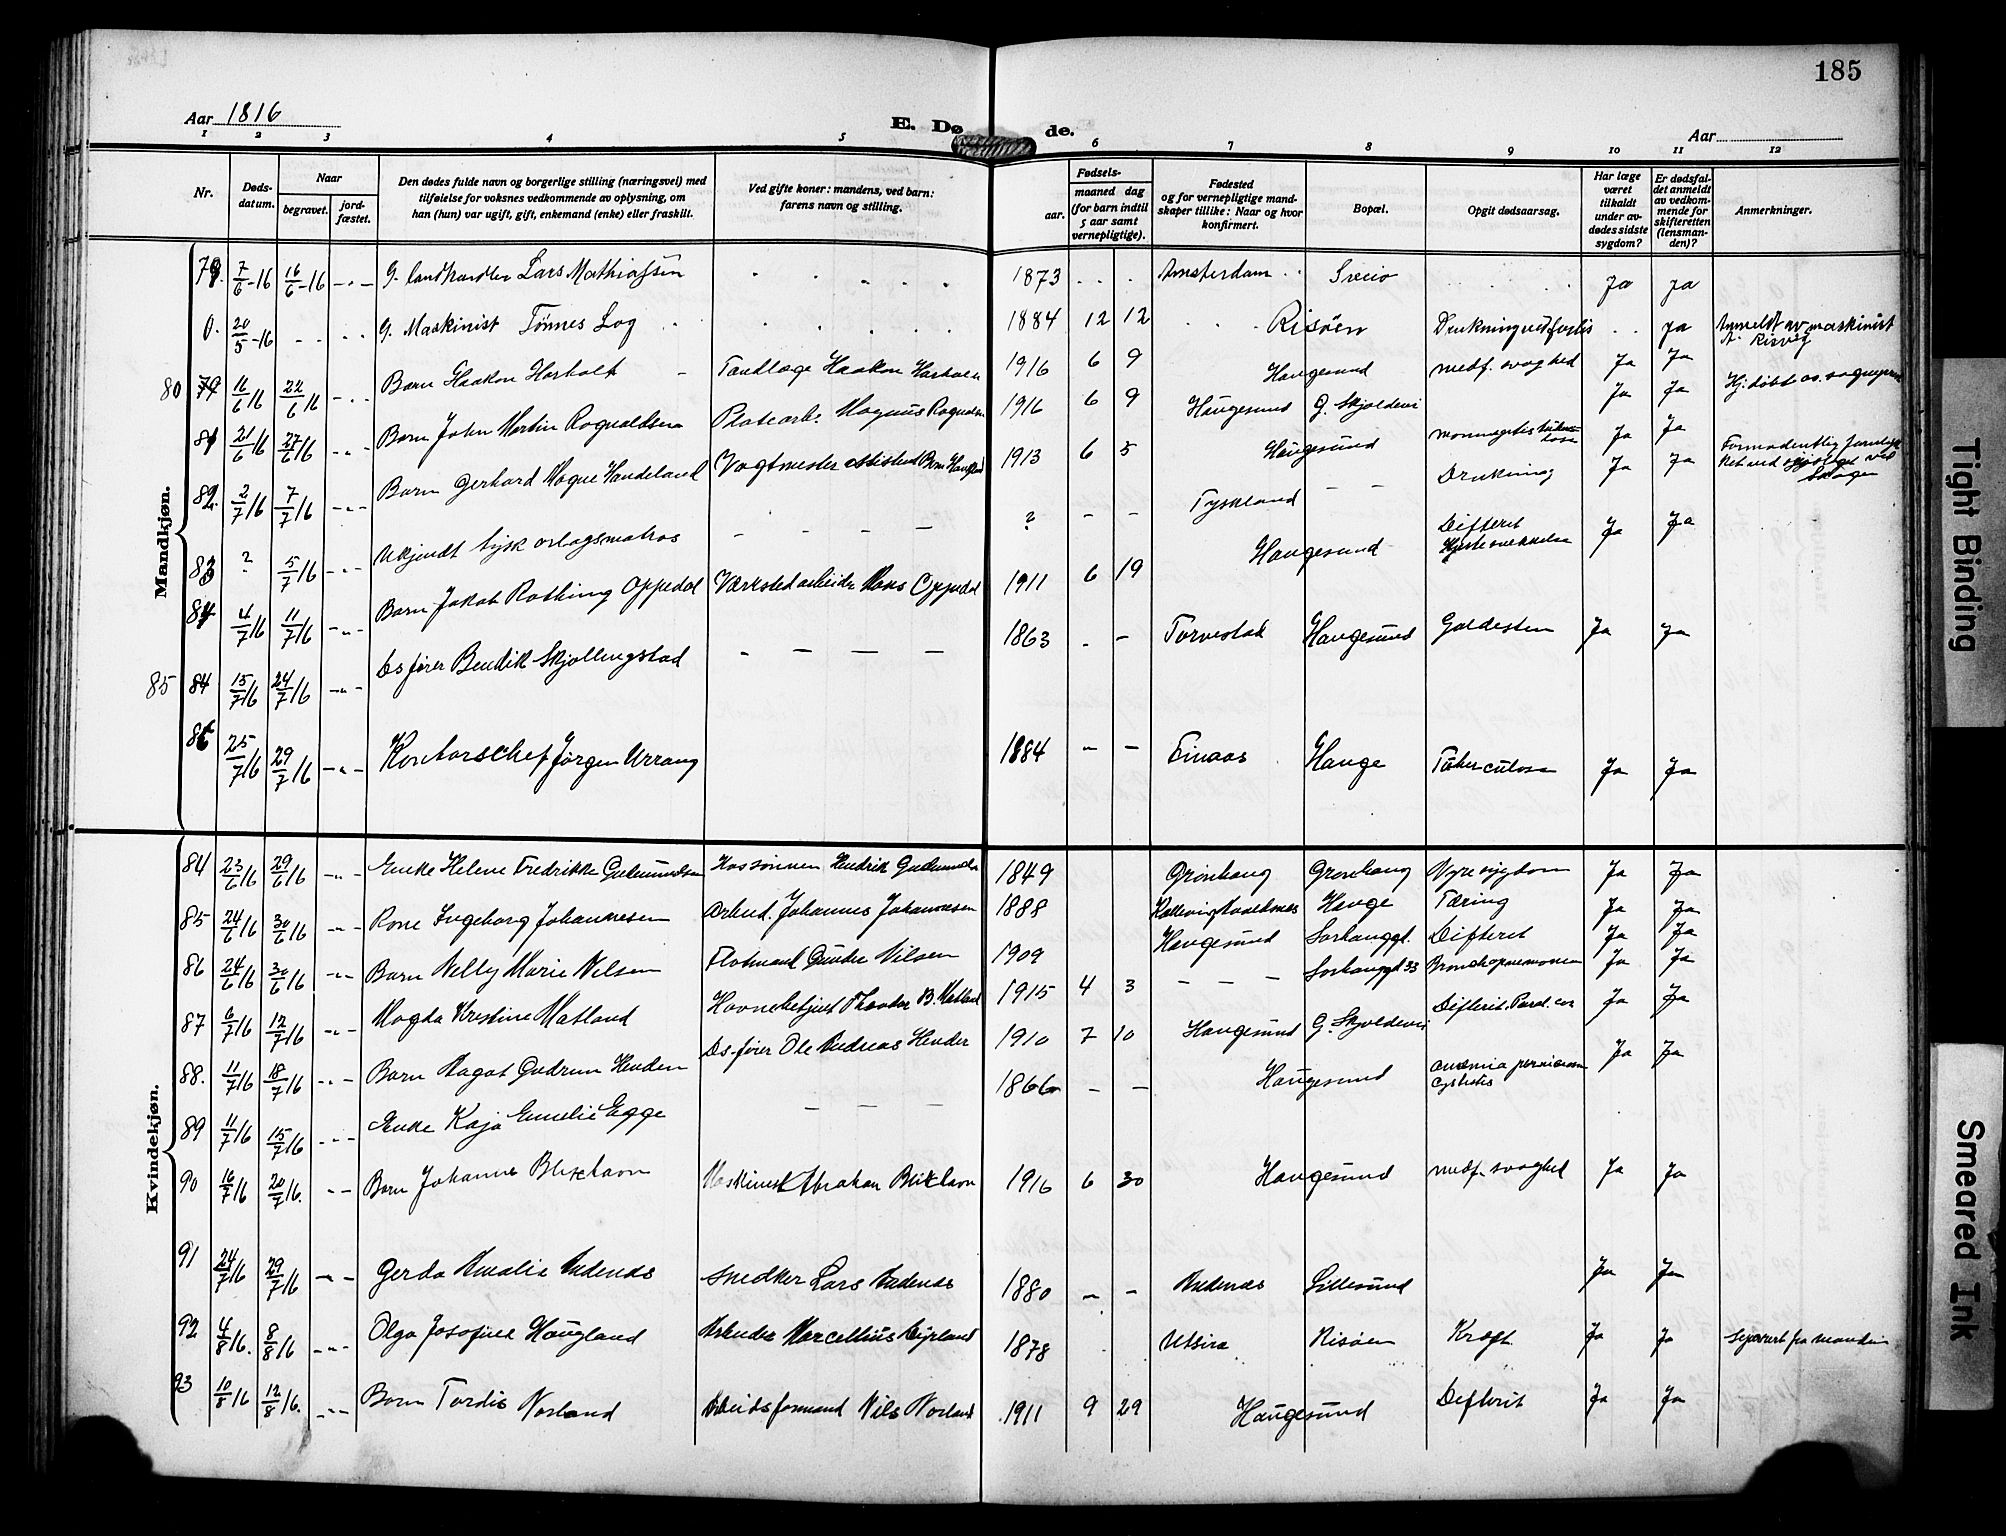 185
Aar 1816
E. Dø de.
Aar
1 2 3 4 5 6 7 8 9 10 11 12
Nr.
Døds-
datum.
Naar
begravet.
jord-
fæstet.
Den dødes fulde navn og borgerlige stilling (næringsvei) med
tilføielse for voksnes vedkommende av oplysning, om
han (hun) var ugift, gift, enkemand (enke) eller fraskilt.
Ved gifte koner: mandens, ved barn:
farens navn og stilling.
Fødsels-
aar.
maaned dag
(for barn indtil
5 aar samt
vernepligtige).
Fødested
og for vernepligtige mand-
skaper tillike: Naar og hvor
konfirmert.
Bopæl.
Opgit dødsaarsag.
Har læge
været
tilkaldt
under av-
dødes sidste
sygdom?
Er dødsfal-
det anmeldt
av vedkom-
mende for
skifteretten
(lensman-
den)?
Anmerkninger.
Mandkjøn.
7/6-16 16/6-16 G. landhandler Lars Mathiassen 1873 Amsterdam Sveio Ja Ja
0. 20/5-16 G. Maskinist Tönnes Log 1884 12 12 Risöen Ja Anmeldt av maskinist
80 79 16/6 16 22/6 16 Barn Haakon Harbole Tandlæge Haakon 1916 6 9 Haugesund medf. svaghed Ja Ja
81 21/6 16 27/6 16 Barn John Martin Rognaldsen Platearb. Magnus 1916 6 9 Haugesund G. Skjoldevei Ja Ja
82 2/7 16 7/7 16 Barn Gerhard Mogue Handeland Vagtmester 1913 6 5 Haugesund Ja Ja
83 ? 5/7 16 Ukjendt tysk orlogsmatros ? Tyskland Drukning Ja Ja
84 4/7 16 11/7 16 Barn Jakob Oppedal Værkstedarbeider Hans Oppedal 1911 6 19 Haugesund Difterit Ja Ja
85 84 15/7 16 24/7 16 Ds fører Bendik Skjollingstad 1863 Torvestad Haugesund Galdesten Ja Ja
86 25/7 16 29/7 16 Kontorschef Jørgen Urrang 1884 Finaas Hauge Tuberculose Ja Ja
Kvindekjøn.
84 23/6 16 29/6 16 Enke Helene Fredrikke Gudmundsen Hos sønnen Hendrik 1849 Grønhaug Gronhaug Nyresygdom Ja Ja
85 24/6 16 30/6 16 Kone Ingeborg Johannesen Arbeid. Johannes Johannesen 1888 Hauge Tæring Ja Ja
86 24/6 16 30/6 16 Barn Nelly Marie Nilsen Flotmand Gunder Nilsen 1909 Haugesund Sorhauggt. Difterit Ja Ja
87 6/7 16 12/7 16 Magda Kristine Matland Havnebetjent Theodor B. Matland 1915 4 3 Sorhauggt 33 Bronchopneumonien Ja Ja
88. 11/7 16 18/7 16 Barn Magot Gudrun Henden Ds. fører Ole Andreas Hender 1910 7 10 Haugesund G. Skjoldevei Difterit. Paral. cor Ja Ja
89 11/7 16 15/7 16 Enke Kaja Emelie Egge 1866 Haugesund Ja Ja
90 16/7 16 20/7 16. Barn Johanne Blikhavn Maskinist Abraham Blikhavn 1916 6 30 Haugesund medf. svaghed Ja Ja
91 24/7 16 29/7 16 Gerda Amalie Andenæs Snedker Lars Andenæs 1880 Andenæs Lillesund Ja Ja
92 4/8 16. 8/8 16 Olga Josofine Haugland Marcellius 1878 Utsira Risöen Kræft Ja Ja Separert fra manden
93 10/8 16 12/8 16. Barn Tordis Norland Arbeidsformand Nils Norland 1911 9 29 Haugesund Difterit Ja Ja
Tight Binding
Smeared Ink